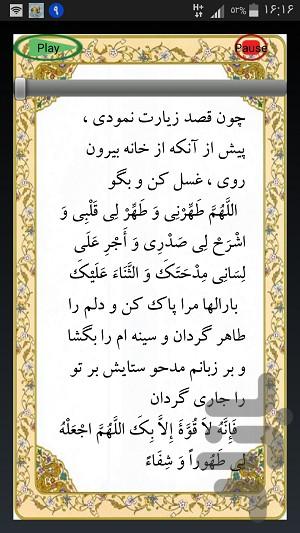 ۹ H+ ۵۳% ۱۶:۱۶
Play Pause
چون قصد زیارت نمودی ،
پیش از آنکه از خانه بیرون
روی ، غسل کن و بگو
اللَّهُمَّ طَهِّرْنِی وَ طَهِّرْ لِی قَلْبِی وَ
اشْرَحْ لِی صَدْرِی وَ أَجْرِ عَلَی
لِسَانِی مِدْحَتَکَ وَ الثَّنَاءَ عَلَیْکَ
بارالها مرا پاک کن و دلم را
طاهر گردان و سینه ام را بگشا
و بر زبانم مدحو ستایش بر تو
را جاری گردان
فَإِنَّهُ لاَ قُوَّةَ إِلاَّ بِکَ اللَّهُمَّ اجْعَلْهُ
لِی طَهُوراً وَ شِفَاءً